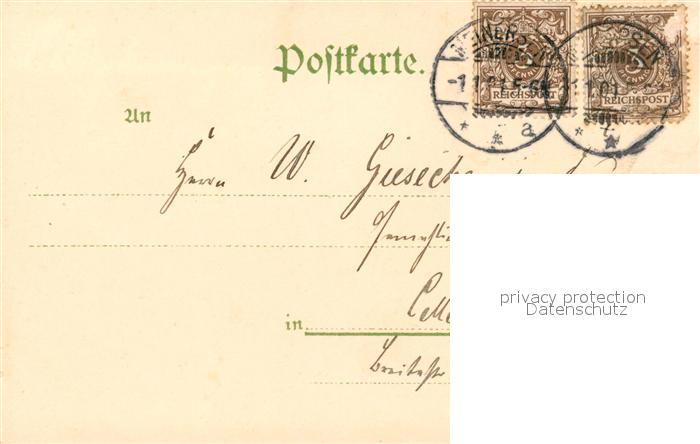 Postkarte.
REICHSPOST
REICHSPOST
An
Herrn W. Giesecke
in Celle
Breitestr
privacy protection
Datenschutz